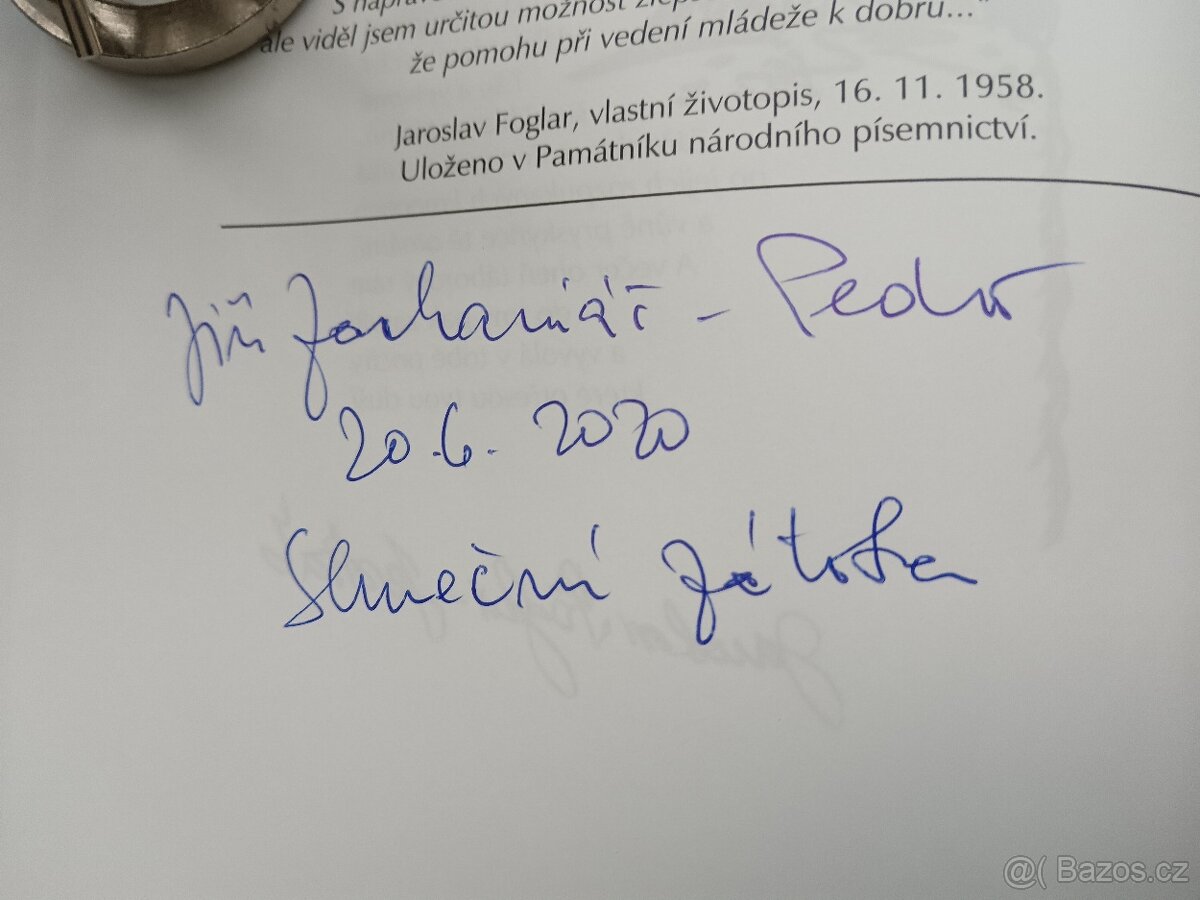 ale viděl jsem určitou možnost
že pomohu při vedení mládeže k dobru..."
Jaroslav Foglar, vlastní životopis, 16. 11. 1958.
Uloženo v Památníku národního písemnictví.
Jiří Zachariáš - Pedro
20.6. 2020
Sluneční zátoka
@( Bazos.cz